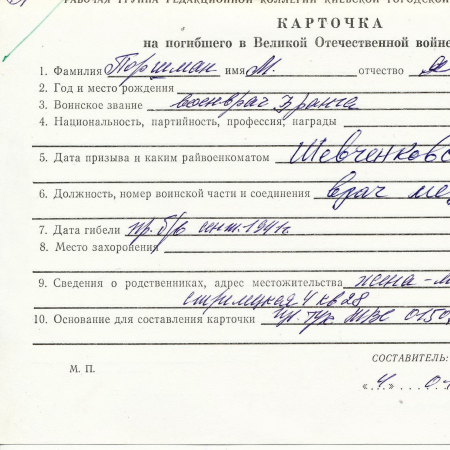 РАБОЧАЯ ГРУППА РЕДАКЦИОННОЙ КОЛЛЕГИИ КИЕВСКОЙ ГОРОДСКОЙ
КАРТОЧКА
на погибшего в Великой Отечественной войне
1. Фамилия Портман имя М. отчество
2. Год и место рождения
3. Воинское звание военврач 3 ранга
4. Национальность, партийность, профессия, награды
5. Дата призыва и каким райвоенкоматом Шевченковс
6. Должность, номер воинской части и соединения врач
7. Дата гибели пр. б/в сент. 1941г.
8. Место захоронения
9. Сведения о родственниках, адрес местожительства жена - М
стрелецкая 4 кв 28
10. Основание для составления карточки пр. ГУК 0150
СОСТАВИТЕЛЬ:
М. П. «4» 01